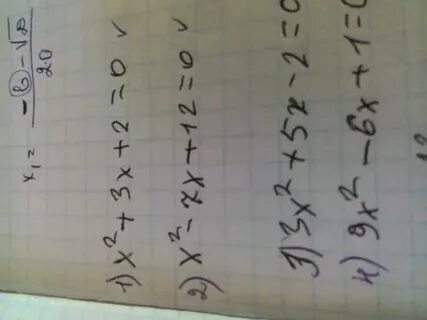 x₁ = (-b - √D) / 2a
1) x² + 3x + 2 = 0 ✓
2) x² - 7x + 12 = 0 ✓
3) 3x² + 5x - 2 = 0
4) 9x² - 6x + 1 = 0